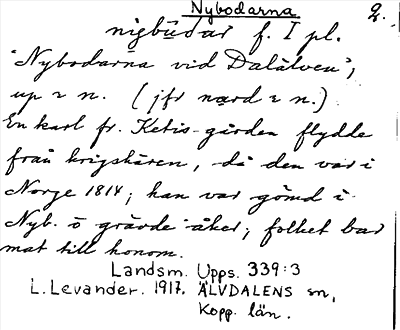 Nybodarna
2.
nigbūdar f. I pl.
"Nybodarna vid Dalälven",
up 2 n. (jfr nærd 2 n.)
En karl fr. Ketis-gården flydde
från krigshären, då den var i
Norge 1814; han var gömd i
Nyb. o grävde åker; folket bar
mat till honom.
Landsm. Upps. 339:3
L. Levander. 1917. ÄLVDALENS sn,
Kopp. län.